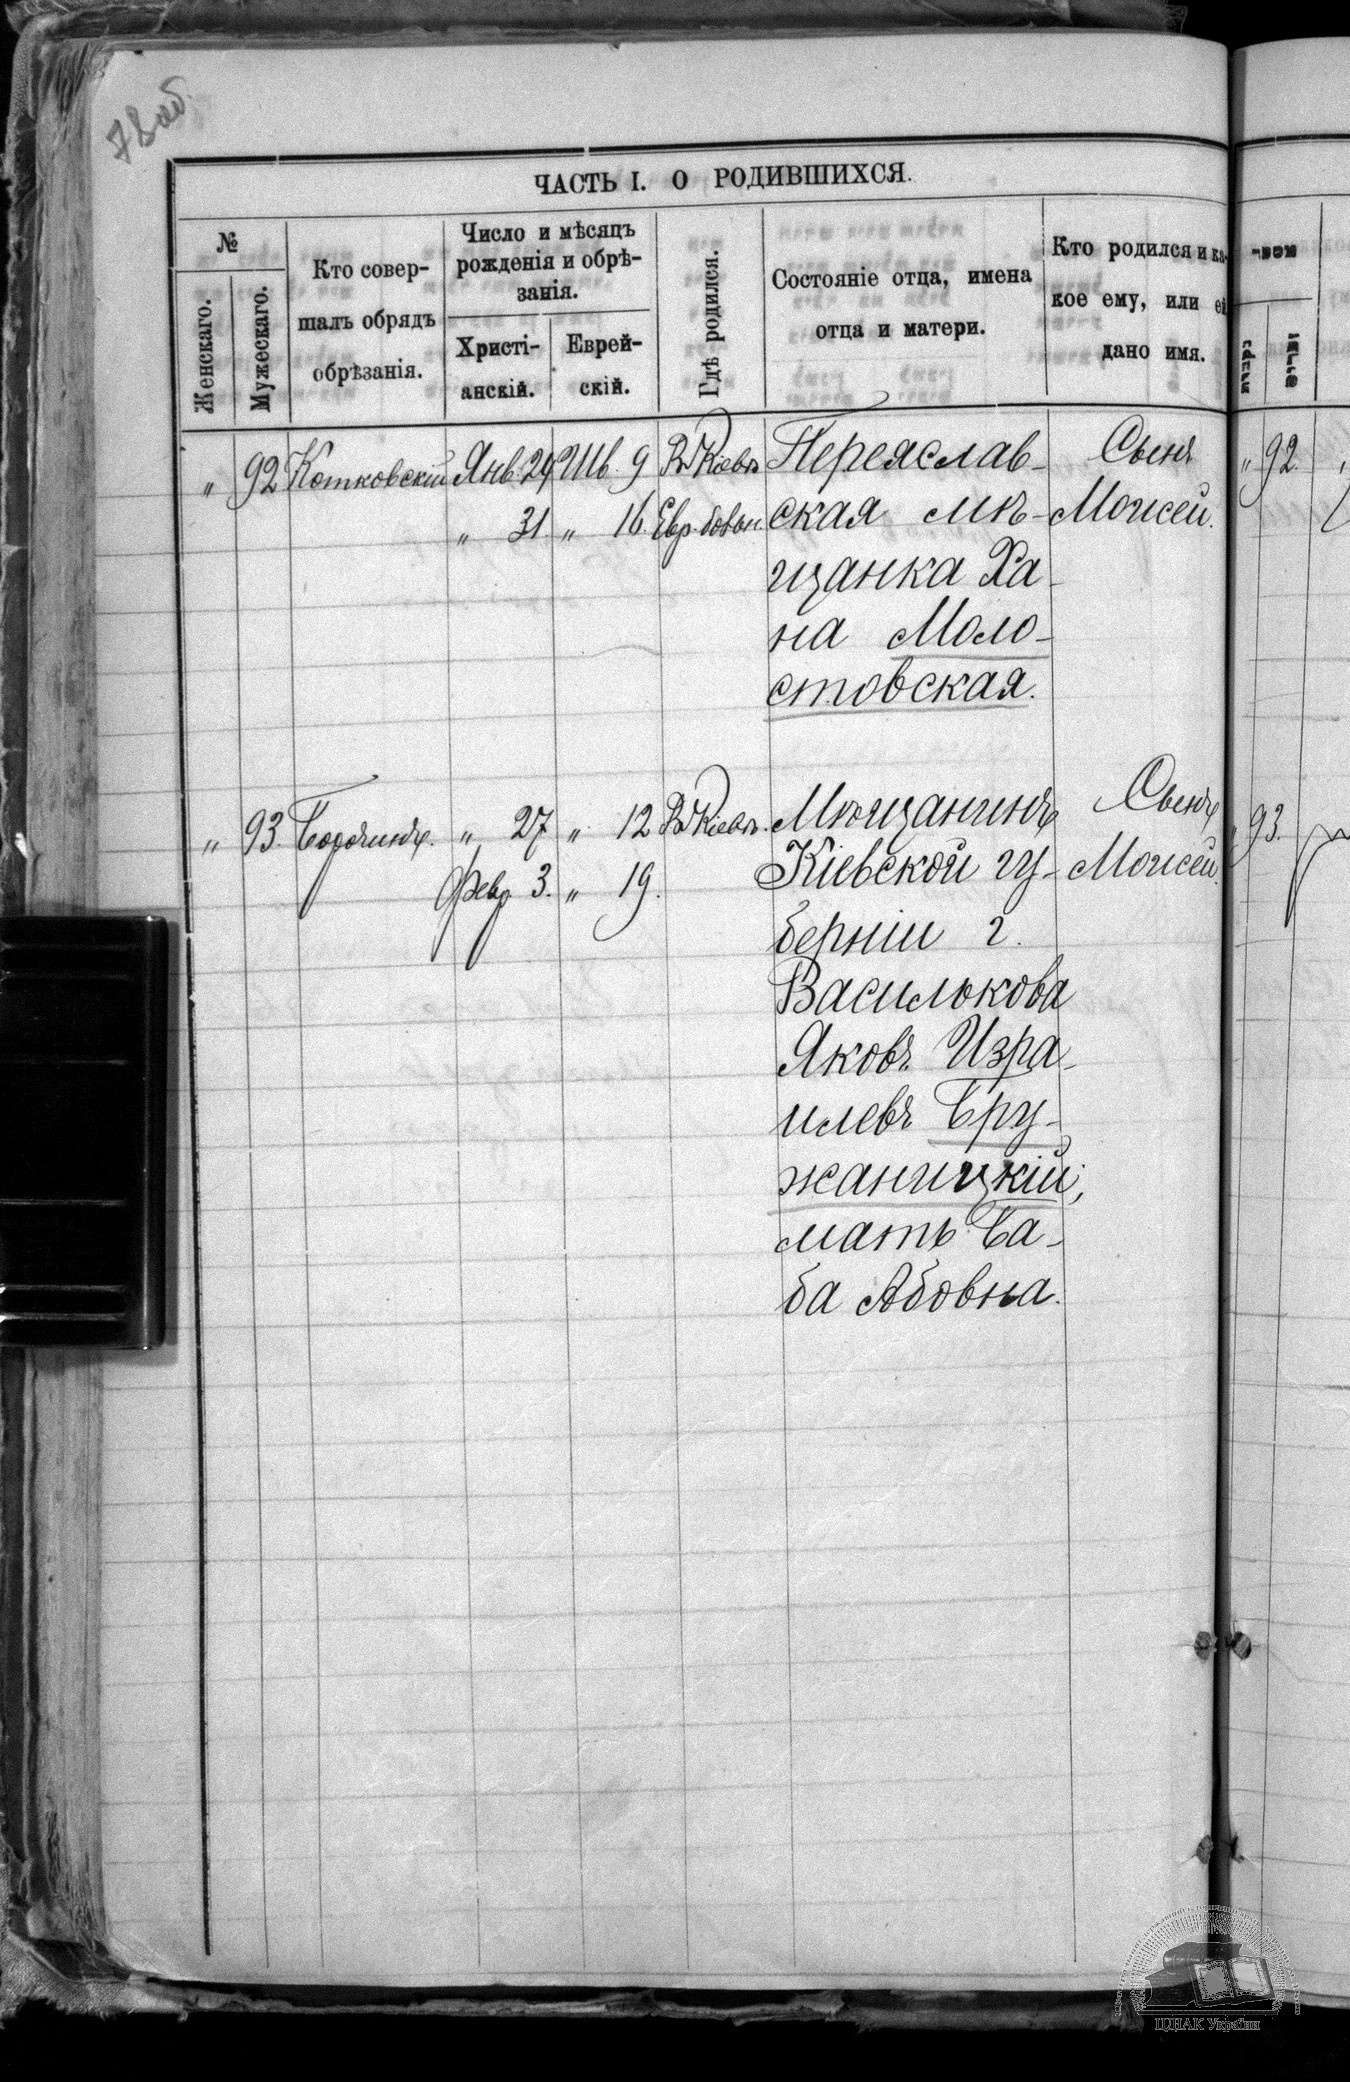 78 об.
ЧАСТЬ I. О РОДИВШИХСЯ.
№
Женскаго.
Мужескаго.
Кто совер-
шалъ обрядъ
обрѣзанія.
Число и мѣсяцъ
рожденія и обрѣ-
занія.
Христі-
анскій.
Еврей-
скій.
Гдѣ родился.
Состояніе отца, имена
отца и матери.
Кто родился и ка-
кое ему, или ей
дано имя.
" 92 Котковскій Янв 24 Шв. 9 Въ Кіевѣ
" 31. " 16. Евр. больн.
Переяслав-
ская мѣ-
щанка Ха-
на Моло-
стовская.
Сынъ
Моисей.
" 92.
" 93. " 27 " 12 Въ Кіевѣ.
Февр 3. " 19.
Мѣщанинъ
Кіевской гу-
берніи г.
Василькова
Яковъ Изра-
илевъ Бру-
жаницкій,
мать Ба-
ба Абовна.
Сынъ
Моисей.
" 93.
ЦДІАК України